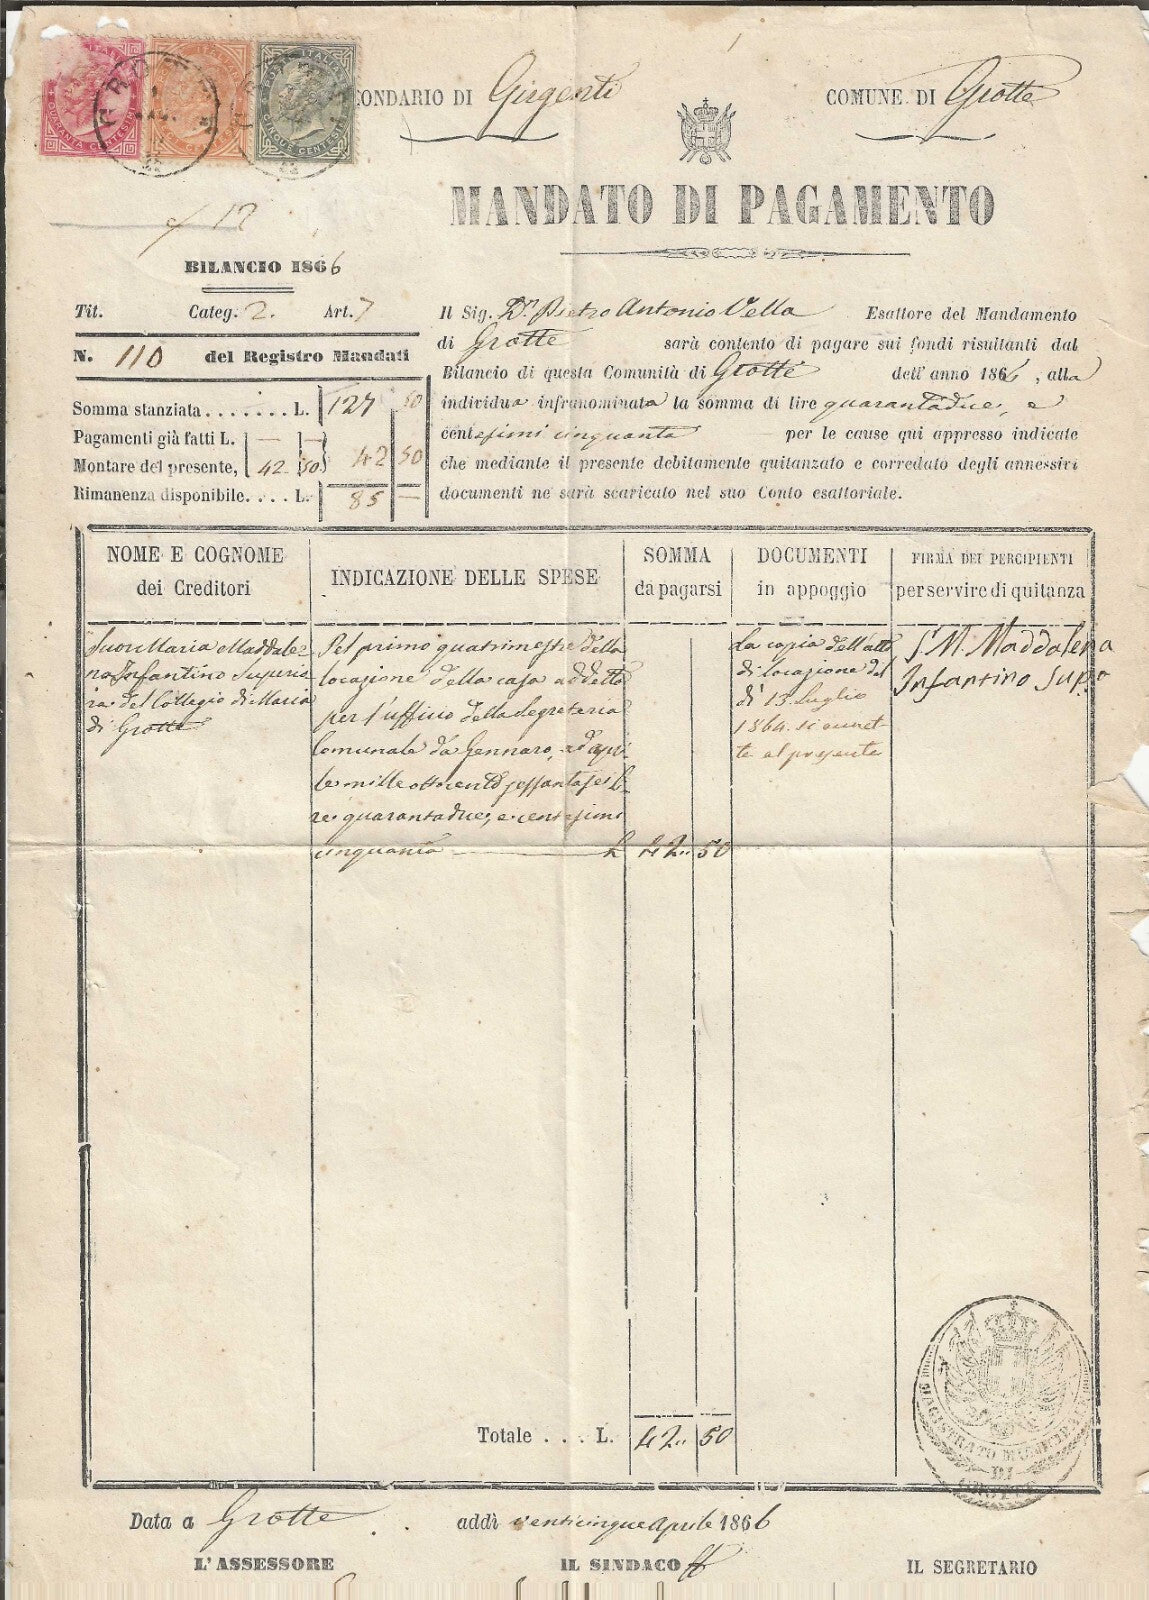 POSTE ITALIANE
QUARANTA CENTESIMI
CINQUE CENTESIMI
GROTTE
CONDARIO DI Girgenti
COMUNE DI Grotte
MANDATO DI PAGAMENTO
12
BILANCIO 1866
Tit. Categ. 2. Art. 7
N. 110 del Registro Mandati
Somma stanziata . . . . . . . L. 127 50
Pagamenti già fatti L. — —
Montare del presente, 42 50 42 50
Rimanenza disponibile. . . . L. 85 —
Il Sig. Dn. Pietro Antonio Vella Esattore del Mandamento
di Grotte sarà contento di pagare sui fondi risultanti dal
Bilancio di questa Comunità di Grotte dell' anno 1866, alla
individua infranominata la somma di lire quarantadue, e
centesimi cinquanta per le cause qui appresso indicate
che mediante il presente debitamente quitanzato e corredato degli annessivi
documenti ne sarà scaricato nel suo Conto esattoriale.
NOME E COGNOME dei Creditori
INDICAZIONE DELLE SPESE
SOMMA da pagarsi
DOCUMENTI in appoggio
FIRMA DEI PERCIPIENTI per servire di quitanza
Suor Maria Maddale-
na Infantino Superio
ra del Collegio di Maria
di Grotte
Pel primo quatrimestre della
locazione della casa addetta
per l'ufficio della Segreteria
Comunale da Gennaro, ad apri-
le mille ottocento sessantasei li-
re quarantadue, e centesimi
cinquanta £ 42.. 50
La copia dell'atto
di locazione del
dì 13 Luglio
1864 si annet-
te al presente
S. M. Maddalena
Infantino Supa
Totale . . . L. 42.. 50
MAGISTRATO MUNICIPALE
DI
GROTTE
Data a Grotte addì venticinque Aprile 1866
L'ASSESSORE IL SINDACO ff IL SEGRETARIO